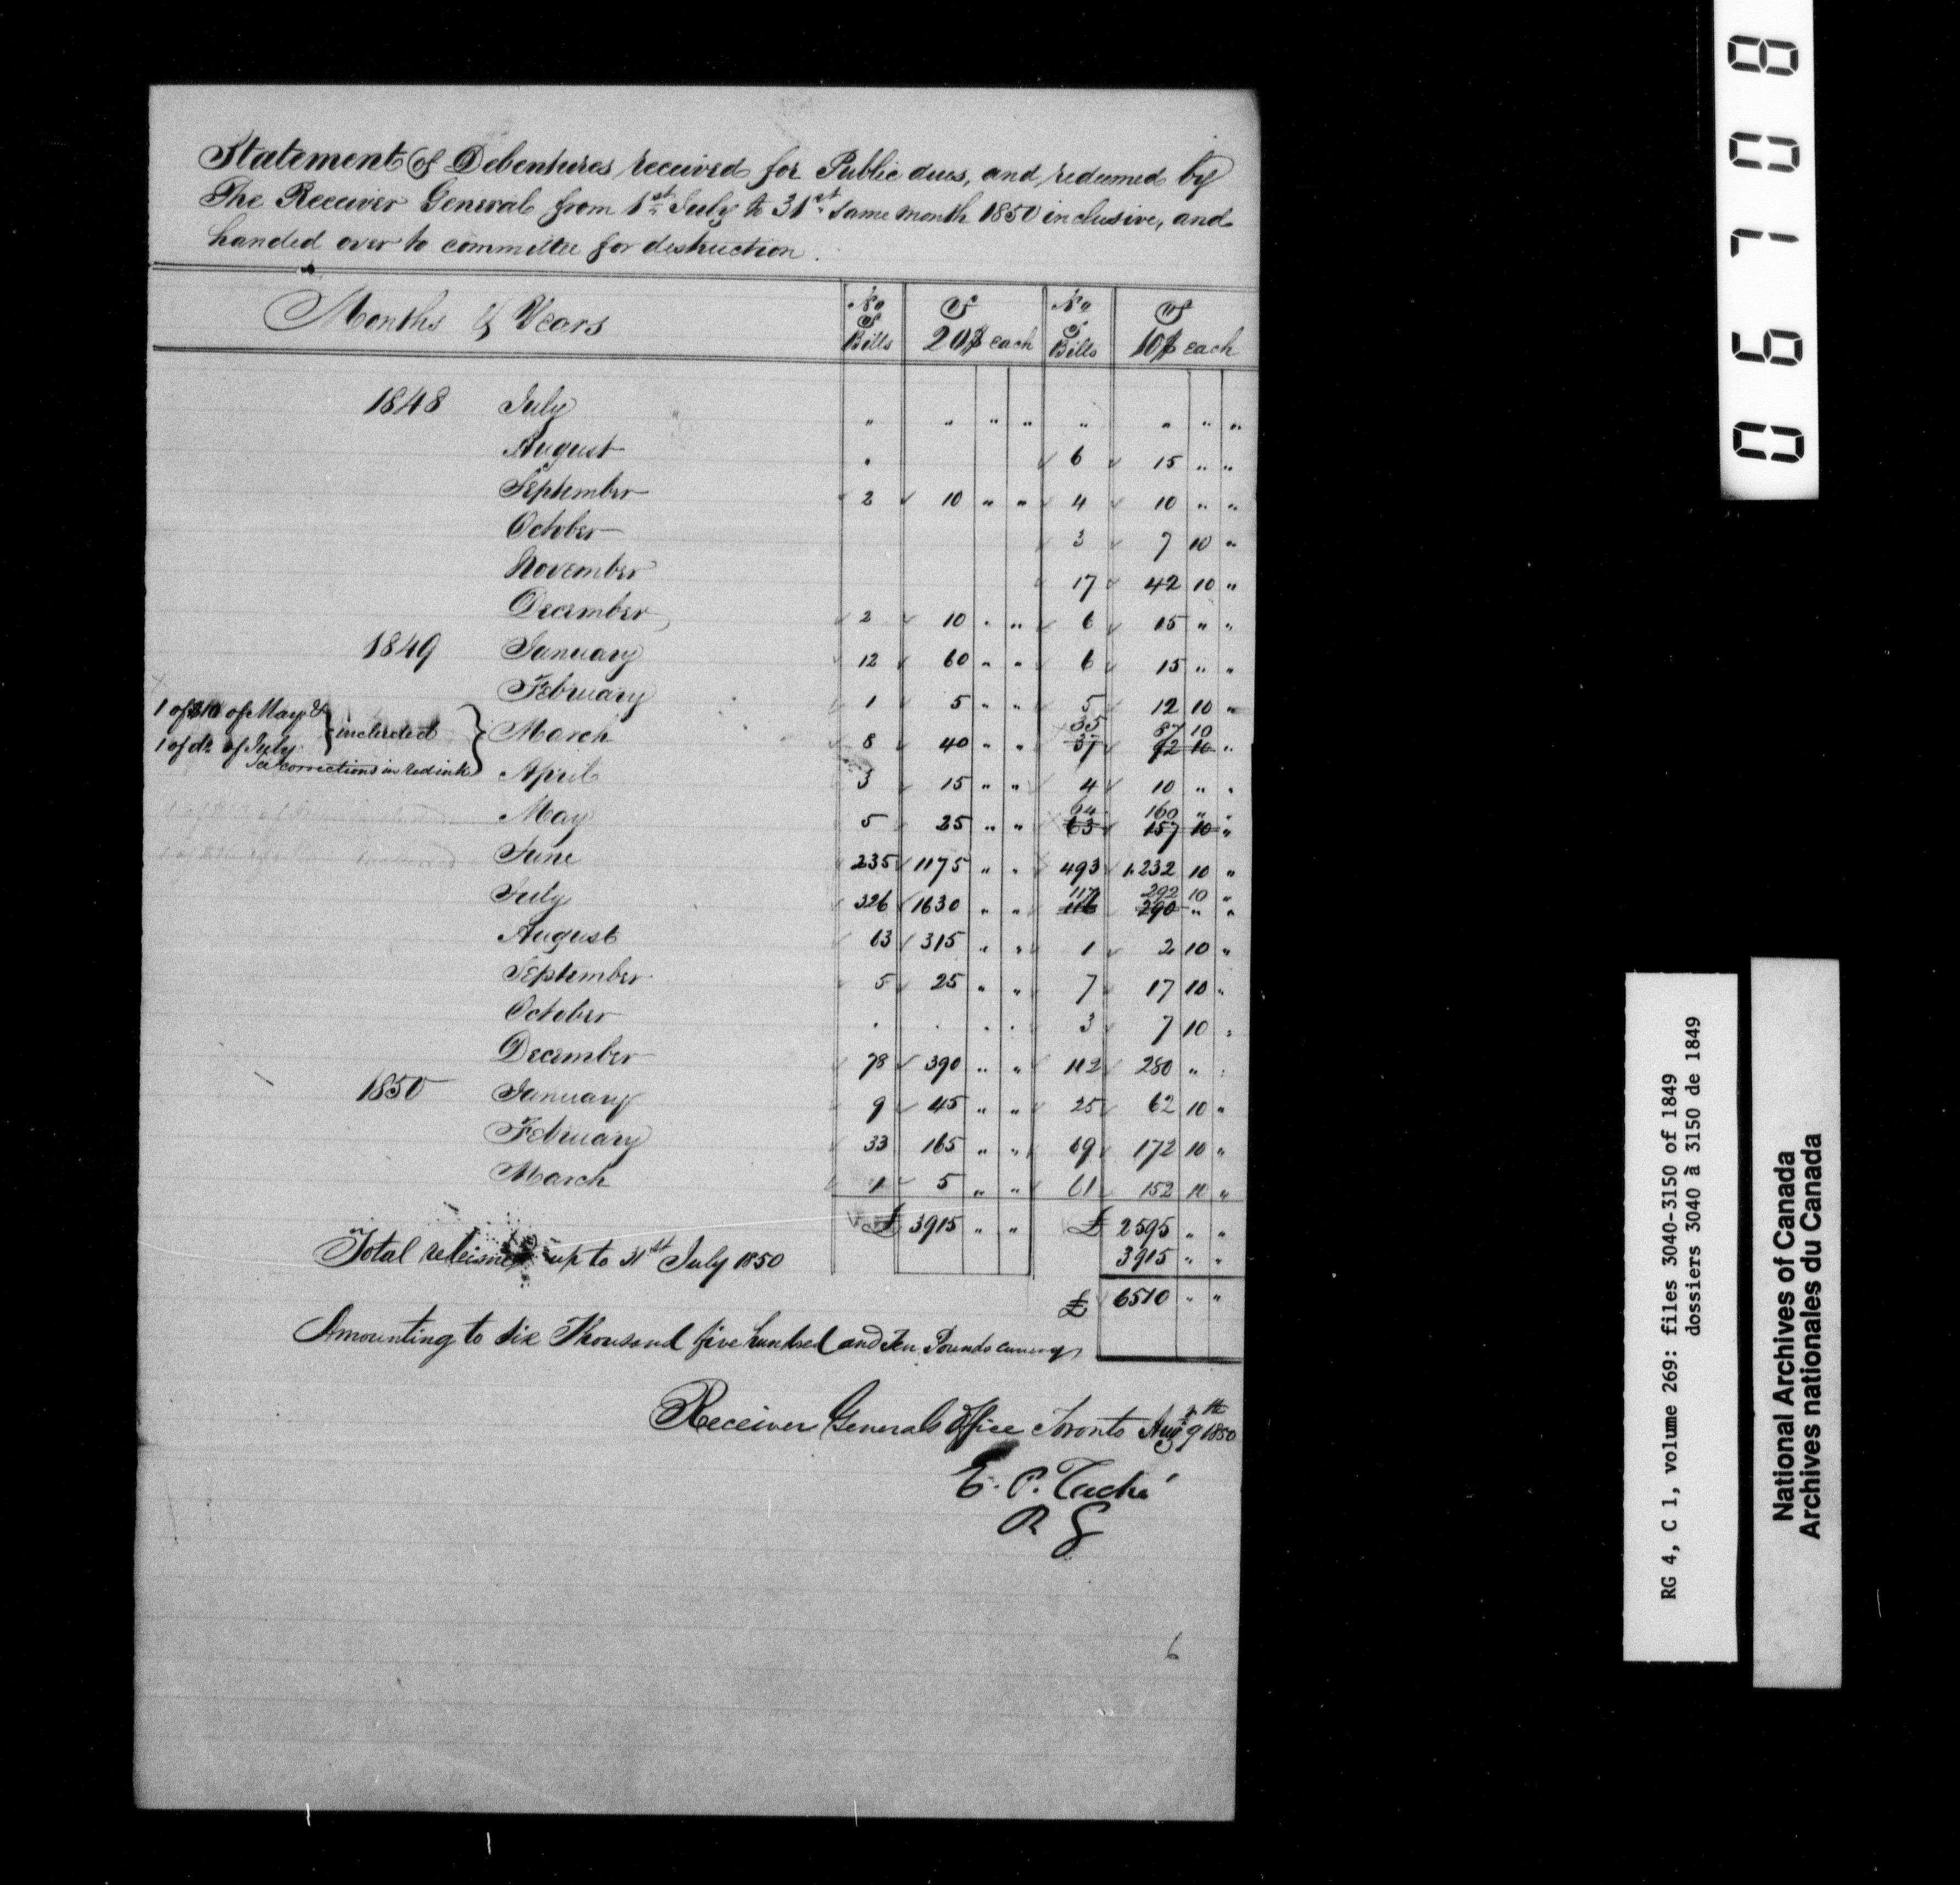 Statement of Debentures received for Public dues, and redeemed by
The Receiver General from 1st July to 31st same month 1850 inclusive, and
handed over to committee for destruction.
Months & Years | No of Bills | Of 20$ each | No of Bills | Of 10$ each
1848 July " " " " " " " "
August " 6 15 " "
September 2 10 " " 4 10 " "
October 3 7 10 "
November 17 42 10 "
December 2 10 " " 6 15 " "
1849 January 12 60 " " 6 15 " "
February 1 5 " " 5 12 10 "
35 87 10
1 of $10 of May & 1 of do of July } included } March 8 40 " " 37 92 10 "
See corrections in red ink
April 3 15 " " 4 10 " "
64 160 " "
May 5 25 " " 63 157 10 "
June 235 1175 " " 493 1.232 10 "
117 292 10 "
July 326 1630 " " 116 290 " "
August 63 315 " " 1 2 10 "
September 5 25 " " 7 17 10 "
October . . . . 3 7 10 "
December 78 390 " " 112 280 " "
1850 January 9 45 " " 25 62 10 "
February 33 165 " " 69 172 10 "
March 1 5 " " 61 152 10 "
£ 3915 " " £ 2595 " "
3915 " "
Total up to 31st July 1850
£ 6510 " "
Amounting to Six Thousand five hundred and Ten Pounds currency
Receiver Generals Office Toronto Augt 9th 1850
E. P. Taché
R G
6
06708
RG 4, C 1, volume 269: files 3040-3150 of 1849
dossiers 3040 à 3150 de 1849
National Archives of Canada
Archives nationales du Canada